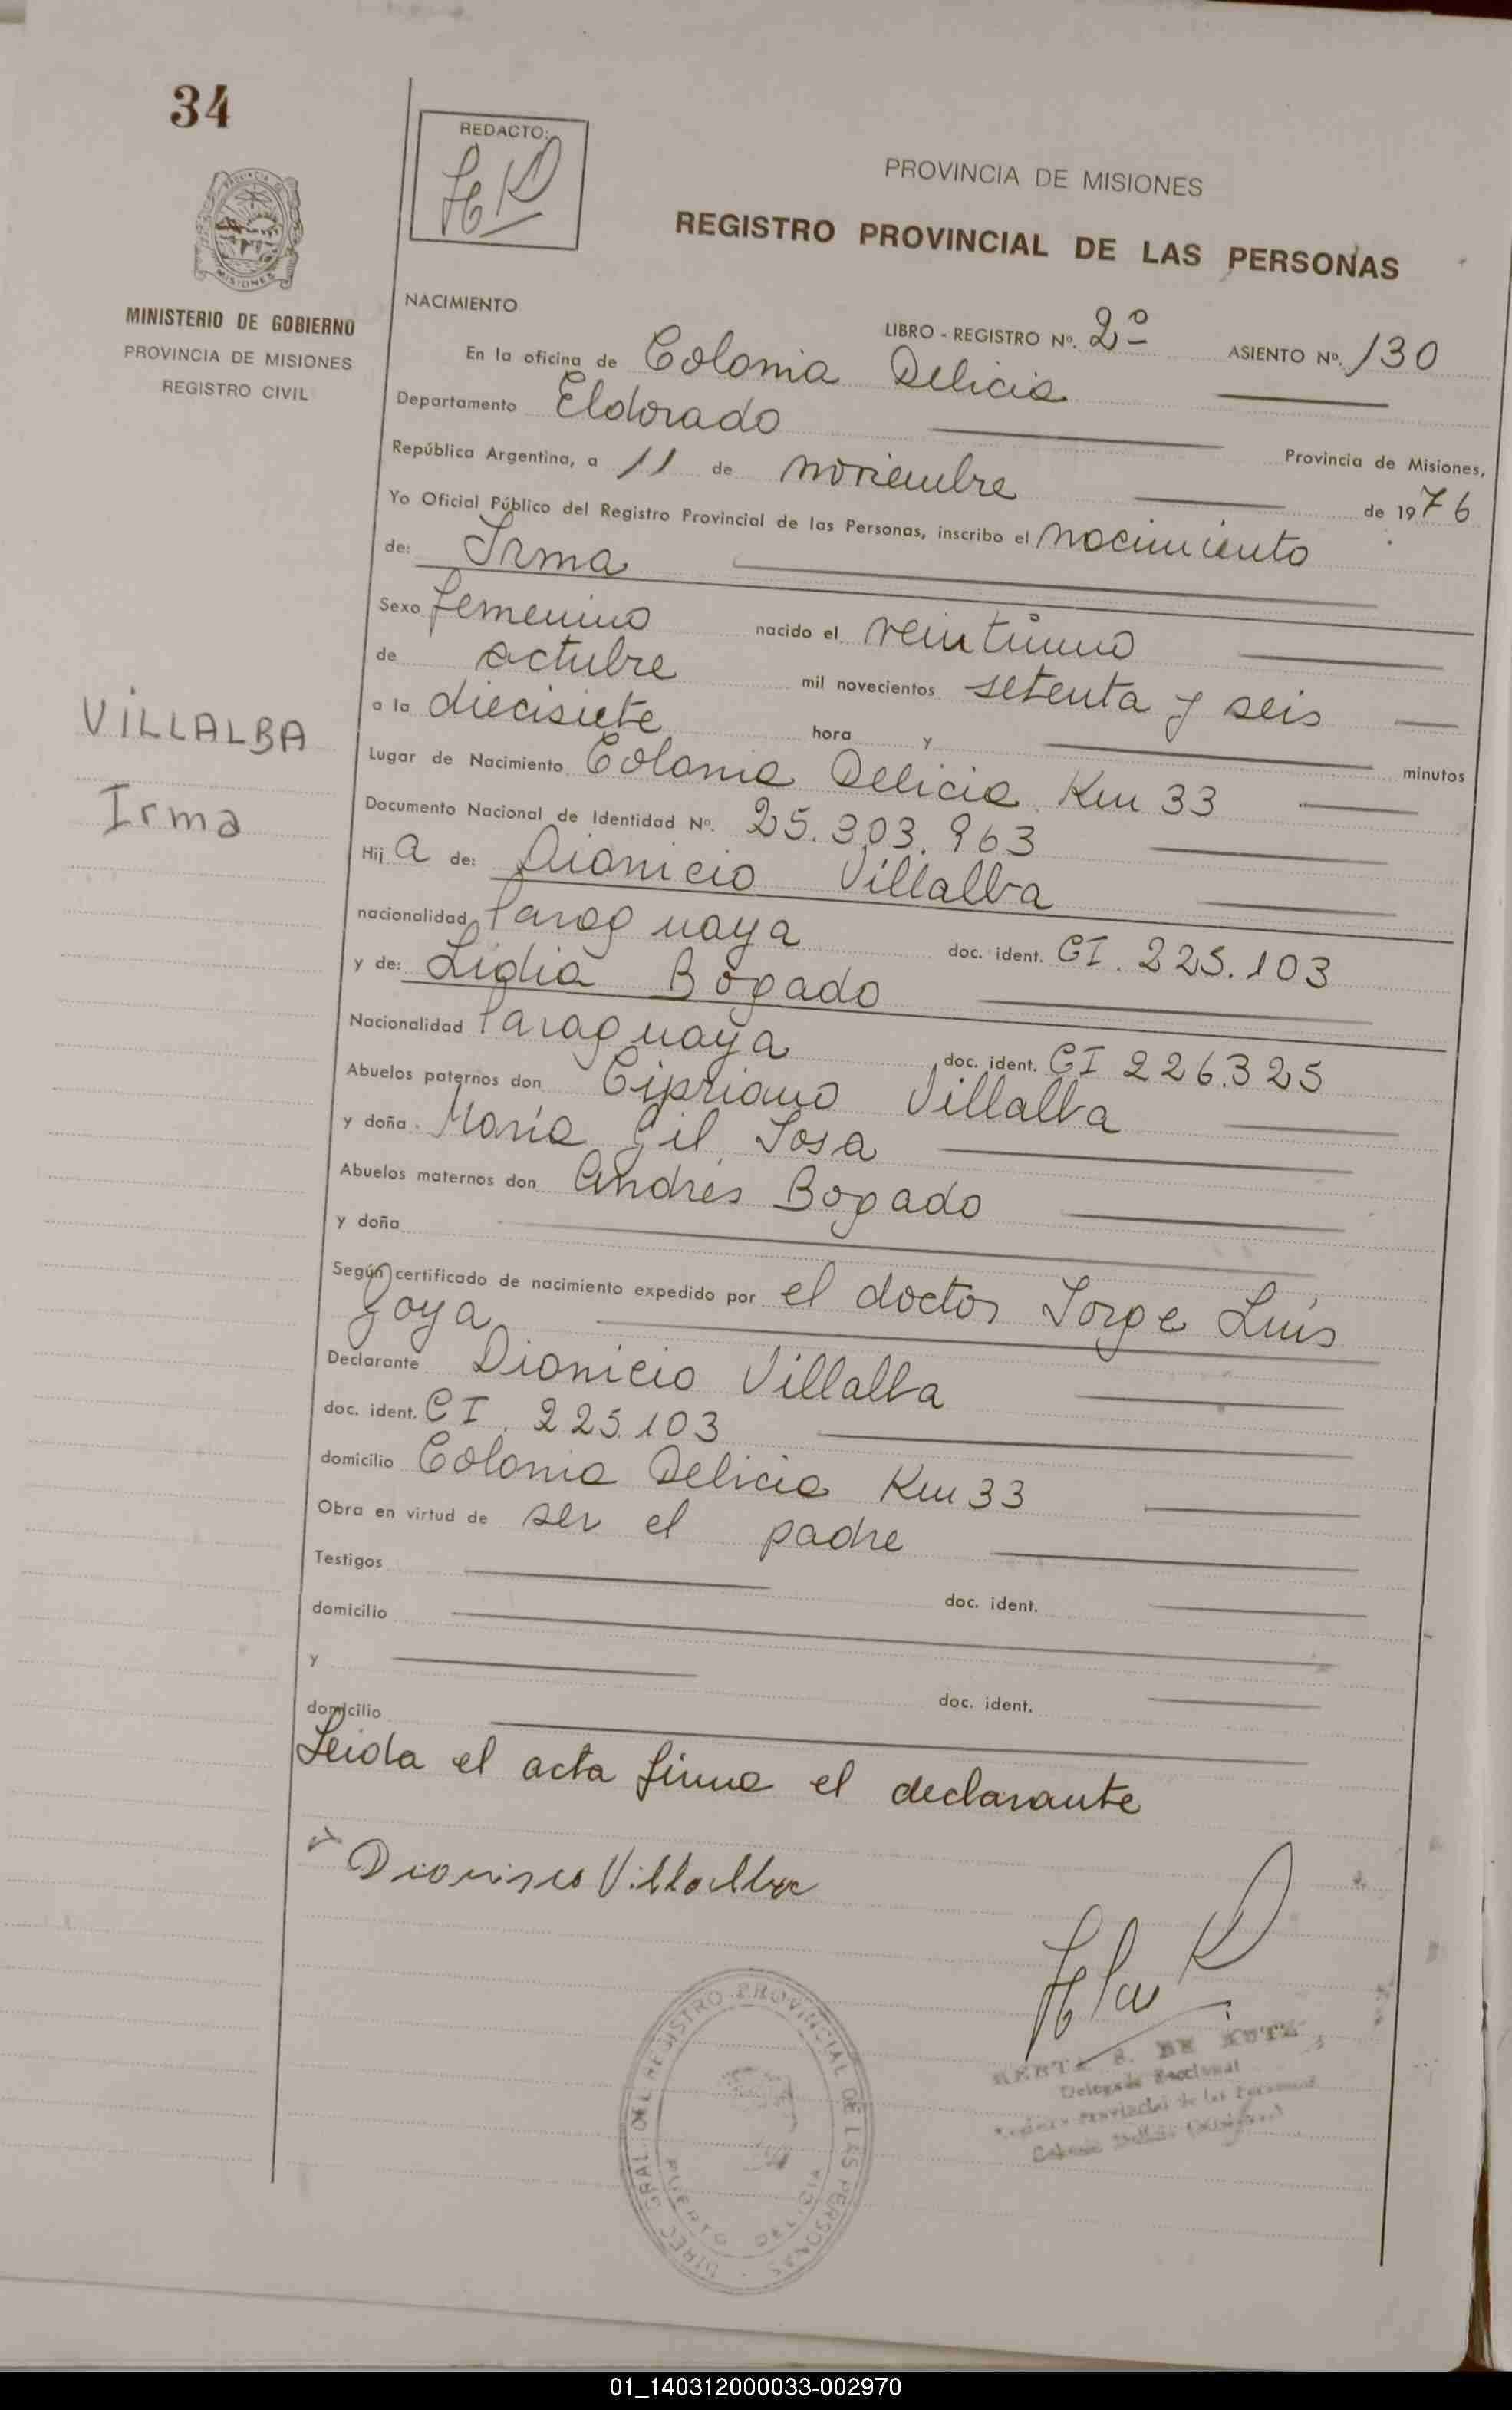 34
REDACTO:
PROVINCIA DE MISIONES
REGISTRO PROVINCIAL DE LAS PERSONAS
MISIONES
MINISTERIO DE GOBIERNO
PROVINCIA DE MISIONES
REGISTRO CIVIL
NACIMIENTO
LIBRO - REGISTRO Nº. 2º ASIENTO Nº. 130
En la oficina de Colonia Delicia
Departamento Eldorado Provincia de Misiones,
República Argentina, a 11 de noviembre de 1976
Yo Oficial Público del Registro Provincial de las Personas, inscribo el nacimiento
de: Irma
Sexo femenino nacido el veintiuno
de octubre mil novecientos setenta y seis
a la diecisiete hora y minutos
VILLALBA
Irma
Lugar de Nacimiento Colonia Delicia Km 33
Documento Nacional de Identidad Nº. 25.303.963
Hij a de: Dionicio Villalba
nacionalidad Paraguaya doc. ident. CI. 225.103
y de: Lidia Bogado
Nacionalidad Paraguaya doc. ident. CI 226.325
Abuelos paternos don Cipriano Villalba
y doña María Gil Sosa
Abuelos maternos don Andrés Bogado
y doña
Según certificado de nacimiento expedido por el doctor Jorge Luis
Goya
Declarante Dionicio Villalba
doc. ident. CI. 225.103
domicilio Colonia Delicia Km 33
Obra en virtud de ser el padre
Testigos doc. ident.
domicilio
y doc. ident.
domicilio
Leida el acta firma el declarante
Dionisio Villalba
B. DE
Delegada Seccional
Registro Provincial de las Personas
Colonia Delicia (Misiones)
DIREC. GRAL. DEL REGISTRO PROVINCIAL DE LAS PERSONAS
PUERTO DELICIA
01_140312000033-002970